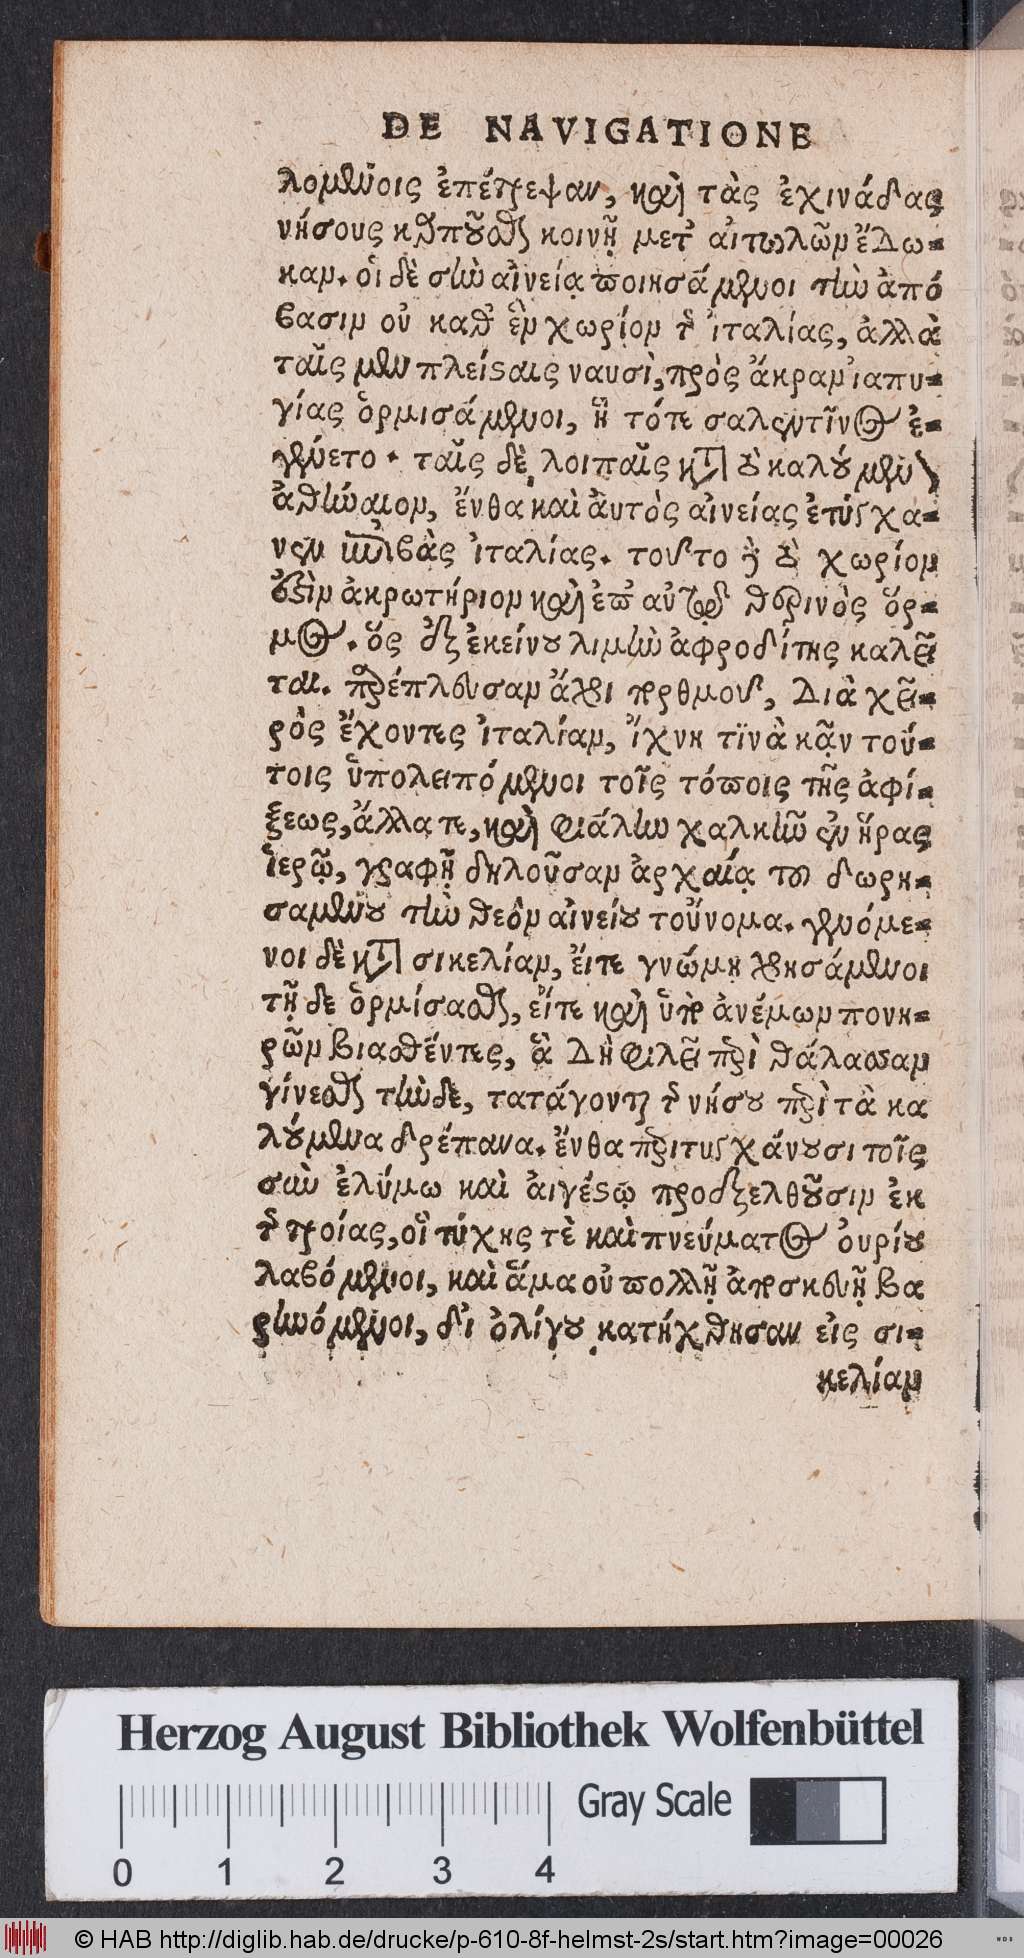 DE NAVIGATIONE
λομένοις ἐπέτρεψαν, καὶ τὰς ἐχινάδας
νήσους καρποῦσθαι κοινῇ μετ' αἰτωλῶν ἔδω-
καν. οἱ δὲ σὺν αἰνείᾳ ποιησάμενοι τὴν ἀπό
βασιν οὐ καθ' ἓν χωρίον τῆς ἰταλίας, ἀλλὰ
ταῖς μὲν πλείσταις ναυσὶ, πρὸς ἄκραν ἰαπυ-
γίας ὁρμισάμενοι, ἣ τότε σαλεντῖνος ἐ-
λέγετο. ταῖς δὲ λοιπαῖς κατὰ τὸ καλούμενον
ἀθήναιον, ἔνθα καὶ αὐτὸς αἰνείας ἐτύγχα-
νεν ἐπιβὰς ἰταλίας. τοῦτο δὲ τὸ χωρίον
ἐστὶν ἀκρωτήριον καὶ ἐπ' αὐτῷ θερινὸς ὅρ-
μος. ὃς ἐξ ἐκείνου λιμὴν ἀφροδίτης καλεῖ
ται. παρέπλευσαν ἄχρι πορθμοῦ, διὰ χει-
ρὸς ἔχοντες ἰταλίαν, ἴχνη τινὰ κἀν τού-
τοις ὑπολειπόμενοι τοῖς τόποις τῆς ἀφί-
ξεως, ἄλλα τε, καὶ φιάλην χαλκῆν ἐν ἥρας
ἱερῷ, γραφῇ δηλοῦσαν ἀρχαίᾳ τοῦ δωρη-
σαμένου τὴν θεὸν αἰνείου τοὔνομα. γενόμε-
νοι δὲ κατὰ σικελίαν, εἴτε γνώμῃ χρησάμενοι
τῇ δε ὁρμίσασθαι, εἴτε καὶ ὑπὸ ἀνέμων πονη-
ρῶν βιασθέντες, ἃ δὴ φιλεῖ περὶ θάλασσαν
γίνεσθαι τήνδε, κατάγονται τῆς νήσου περὶ τὰ κα
λούμενα δρέπανα. ἔνθα περιτυγχάνουσι τοῖς
σὺν ἐλύμῳ καὶ αἰγέστῳ προεξελθοῦσιν ἐκ
τῆς τροίας, οἳ τύχης τὲ καὶ πνεύματος οὐρίου
λαβόμενοι, καὶ ἅμα οὐ πολλῇ ἀποσκευῇ βα
ρυνόμενοι, δι' ὀλίγου κατήχθησαν εἰς σι-
κελίαν
Herzog August Bibliothek Wolfenbüttel
Gray Scale
0 1 2 3 4
© HAB http://diglib.hab.de/drucke/p-610-8f-helmst-2s/start.htm?image=00026